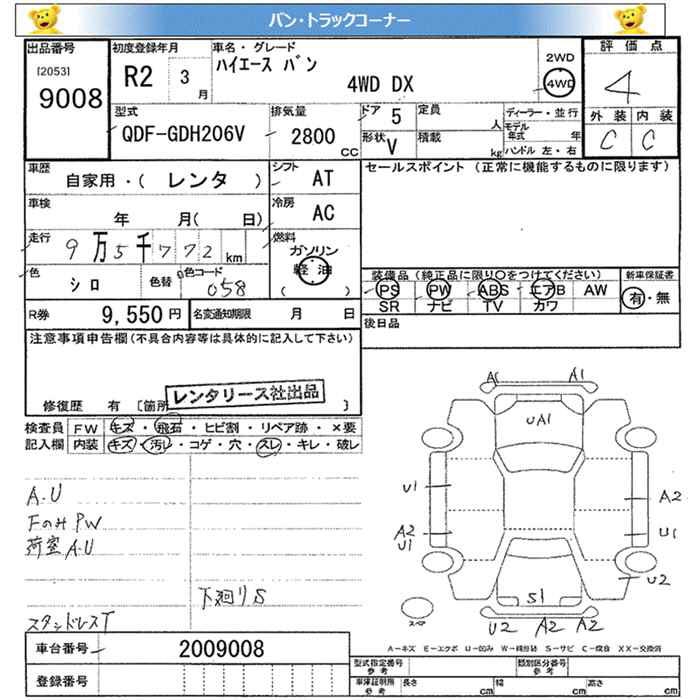 バン・トラックコーナー
出品番号 初度登録年月 車名・グレード 評価点
[2053] 9008 R2 3月 ハイエース バン 4WD DX 2WD 4WD 4
型式 排気量 ドア 5 定員 人 ディーラー・並行 外装 内装
QDF-GDH206V 2800 CC 形状 V 積載 kg モデル年式 年 C C
ハンドル 左・右
車歴 自家用・( レンタ ) シフト AT セールスポイント (正常に機能するものに限ります)
車検 年 月( 日) 冷房 AC
走行 9万5千772km 燃料 ガソリン 軽油
色 シロ 色替 色コード 058
装備品(純正品に限り○をつけてください) 新車保証書
PS PW ABS エアB AW 有・無
SR ナビ TV カワ
R券 9,550円 名変通知期限 月 日
後日品
注意事項申告欄(不具合内容等は具体的に記入して下さい)
レンタリース社出品
修復歴 有 [箇所 ]
検査員 FW キズ・飛石・ヒビ割・リペア跡・×要
記入欄 内装 キズ・汚レ・コゲ・穴・スレ・キレ・破レ
A.U
FのみPW
荷室A.U
下廻りS
スタッドレスT
A1 A1
UA1
U1 A2
A2 U1 U1
U2
S1
スペア U2 A2 A2
A=キズ E=エクボ U=凹み W=補修跡 S=サビ C=腐食 XX=交換済
車台番号 2009008
登録番号
型式指定番号 参考 類別区分番号 参考
車庫証明用 参考 長さ cm 幅 cm 高さ cm